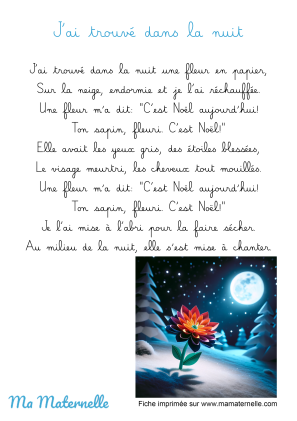 J'ai trouvé dans la nuit
J'ai trouvé dans la nuit une fleur en papier,
Sur la neige, endormie et je l'ai réchauffée.
Une fleur m'a dit: "C'est Noël aujourd'hui!
Ton sapin, fleuri. C'est Noël!"
Elle avait les yeux gris, des étoiles blessées,
Le visage meurtri, les cheveux tout mouillés.
Une fleur m'a dit: "C'est Noël aujourd'hui!
Ton sapin, fleuri. C'est Noël!"
Je l'ai mise à l'abri pour la faire sécher.
Au milieu de la nuit, elle s'est mise à chanter.
Ma Maternelle
Fiche imprimée sur www.mamaternelle.com